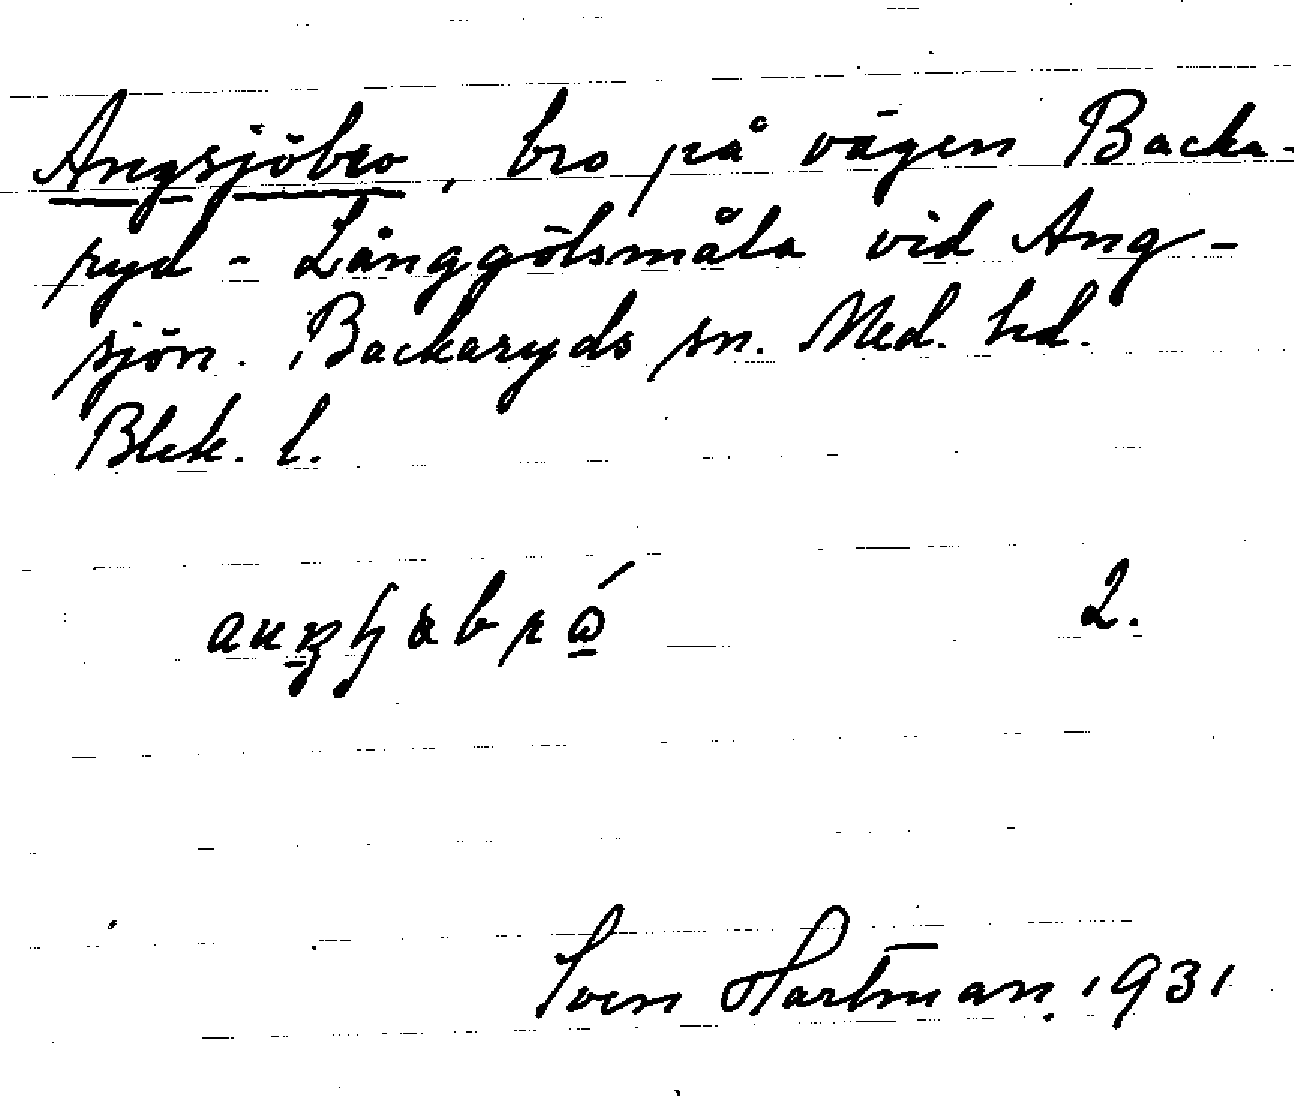 Angsjöbro, bro på vägen Backa-
ryd - Långgölsmåla vid Ang-
sjön. Backaryds sn. Med. hd.
Blek. l.
2.
Sven Hartman. 1931